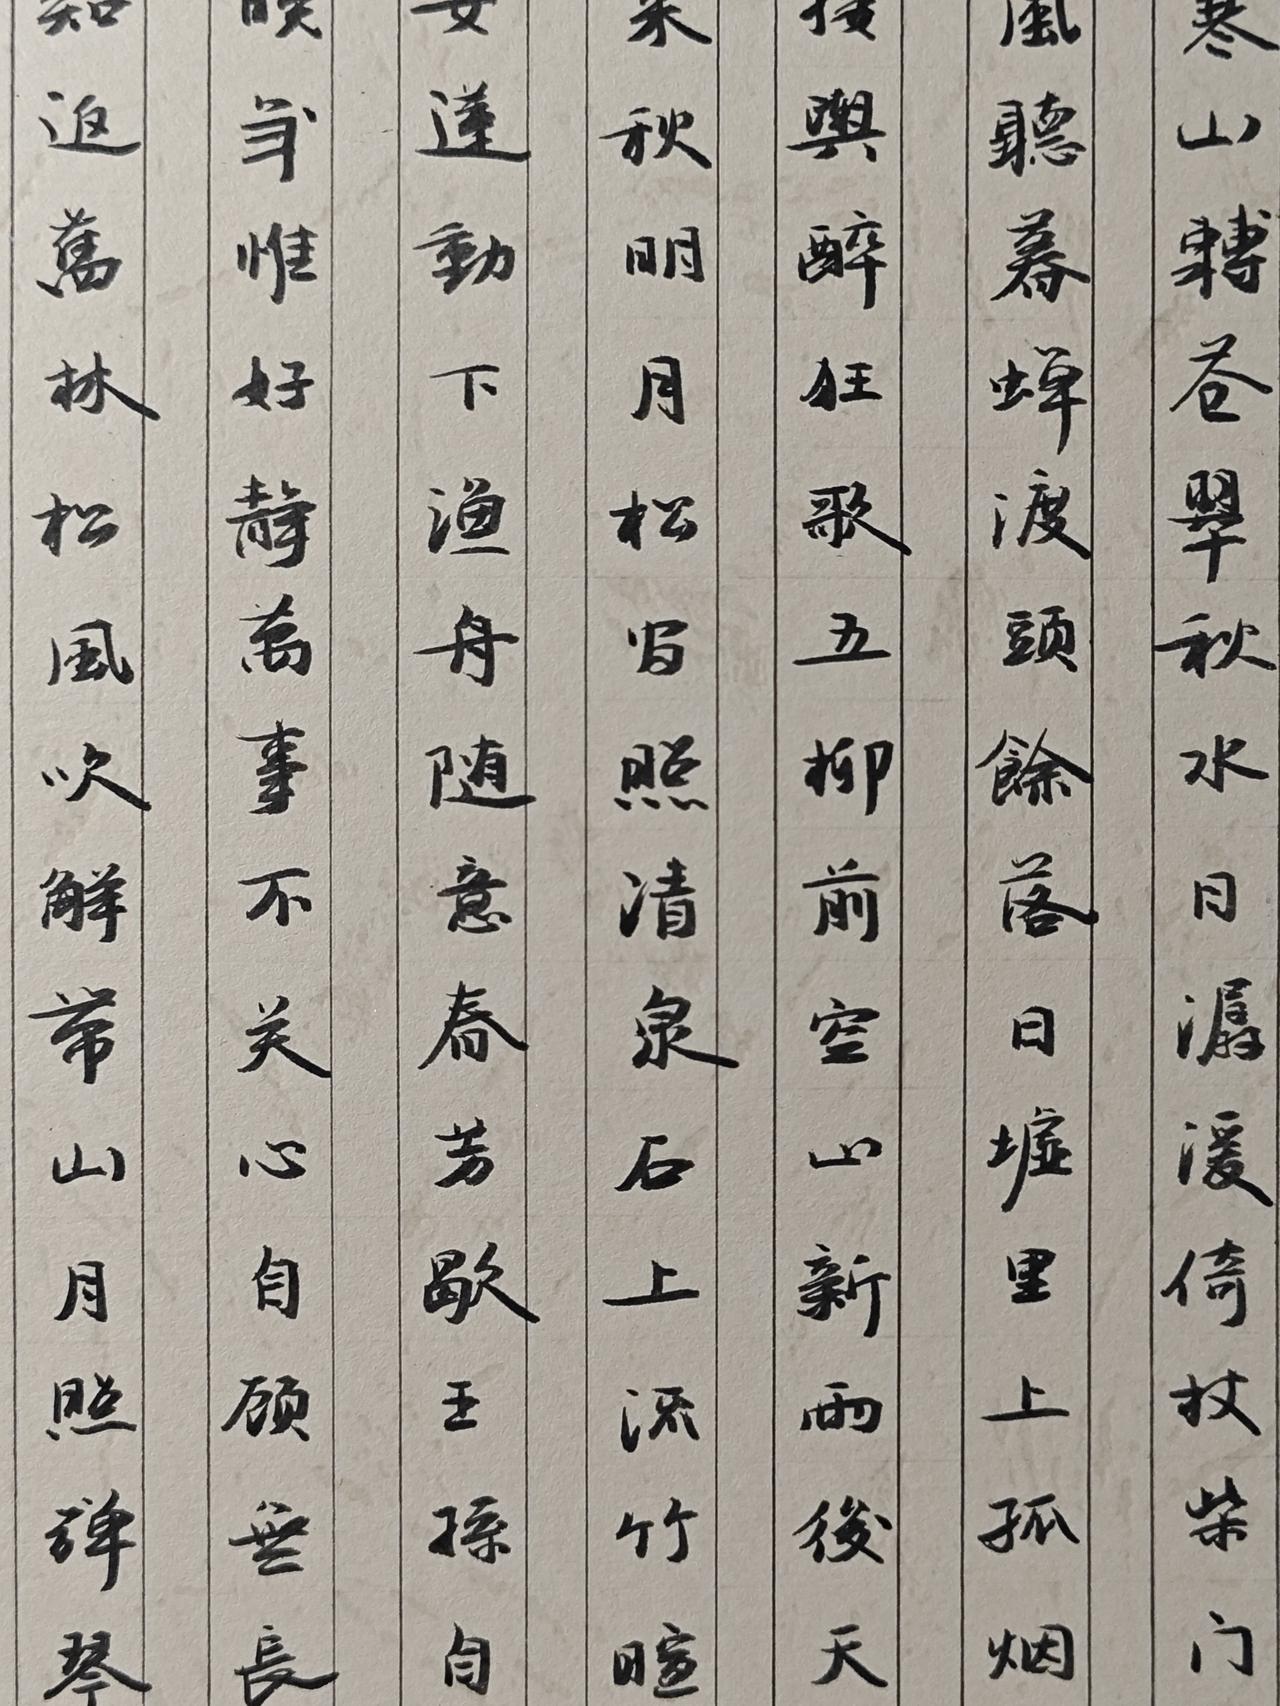 寒山轉苍翠秋水日潺湲倚杖柴门
風聽暮蝉渡頭餘落日墟里上孤烟
接輿醉狂歌五柳前空山新雨後天
来秋明月松间照清泉石上流竹喧
女蓮動下渔舟随意春芳歇王孫自
晚年惟好靜萬事不关心自顾無長
知返舊林松風吹解带山月照弹琴